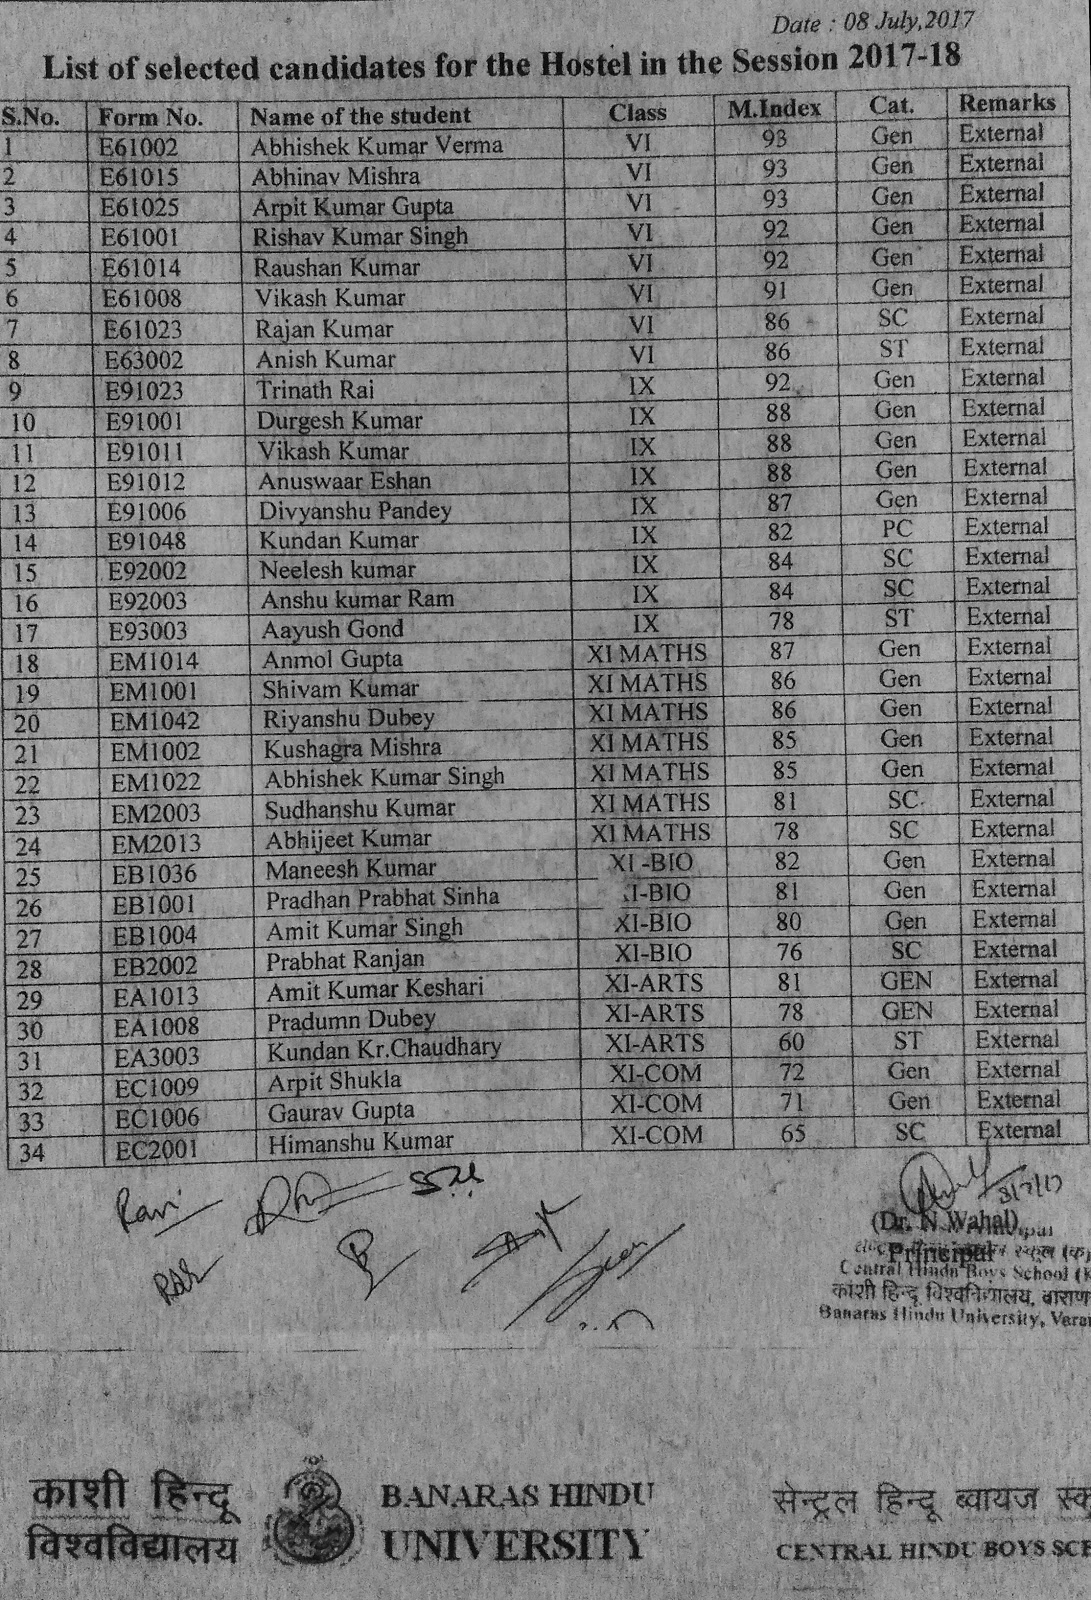 Date : 08 July,2017
List of selected candidates for the Hostel in the Session 2017-18
S.No. Form No. Name of the student Class M.Index Cat. Remarks
1 E61002 Abhishek Kumar Verma VI 93 Gen External
2 E61015 Abhinav Mishra VI 93 Gen External
3 E61025 Arpit Kumar Gupta VI 93 Gen External
4 E61001 Rishav Kumar Singh VI 92 Gen External
5 E61014 Raushan Kumar VI 92 Gen External
6 E61008 Vikash Kumar VI 91 Gen External
7 E61023 Rajan Kumar VI 86 SC External
8 E63002 Anish Kumar VI 86 ST External
9 E91023 Trinath Rai IX 92 Gen External
10 E91001 Durgesh Kumar IX 88 Gen External
11 E91011 Vikash Kumar IX 88 Gen External
12 E91012 Anuswaar Eshan IX 88 Gen External
13 E91006 Divyanshu Pandey IX 87 Gen External
14 E91048 Kundan Kumar IX 82 PC External
15 E92002 Neelesh kumar IX 84 SC External
16 E92003 Anshu kumar Ram IX 84 SC External
17 E93003 Aayush Gond IX 78 ST External
18 EM1014 Anmol Gupta XI MATHS 87 Gen External
19 EM1001 Shivam Kumar XI MATHS 86 Gen External
20 EM1042 Riyanshu Dubey XI MATHS 86 Gen External
21 EM1002 Kushagra Mishra XI MATHS 85 Gen External
22 EM1022 Abhishek Kumar Singh XI MATHS 85 Gen External
23 EM2003 Sudhanshu Kumar XI MATHS 81 SC External
24 EM2013 Abhijeet Kumar XI MATHS 78 SC External
25 EB1036 Maneesh Kumar XI -BIO 82 Gen External
26 EB1001 Pradhan Prabhat Sinha XI-BIO 81 Gen External
27 EB1004 Amit Kumar Singh XI-BIO 80 Gen External
28 EB2002 Prabhat Ranjan XI-BIO 76 SC External
29 EA1013 Amit Kumar Keshari XI-ARTS 81 GEN External
30 EA1008 Pradumn Dubey XI-ARTS 78 GEN External
31 EA3003 Kundan Kr.Chaudhary XI-ARTS 60 ST External
32 EC1009 Arpit Shukla XI-COM 72 Gen External
33 EC1006 Gaurav Gupta XI-COM 71 Gen External
34 EC2001 Himanshu Kumar XI-COM 65 SC External
Ravi
8/7/17
(Dr. N.Wahal)
Principal
Central Hindu Boys School (K
काशी हिन्दू विश्वविद्यालय, वाराण
Banaras Hindu University, Vara
काशी हिन्दू BANARAS HINDU सेन्ट्रल हिन्दू ब्वायज स्क
विश्वविद्यालय UNIVERSITY CENTRAL HINDU BOYS SCH